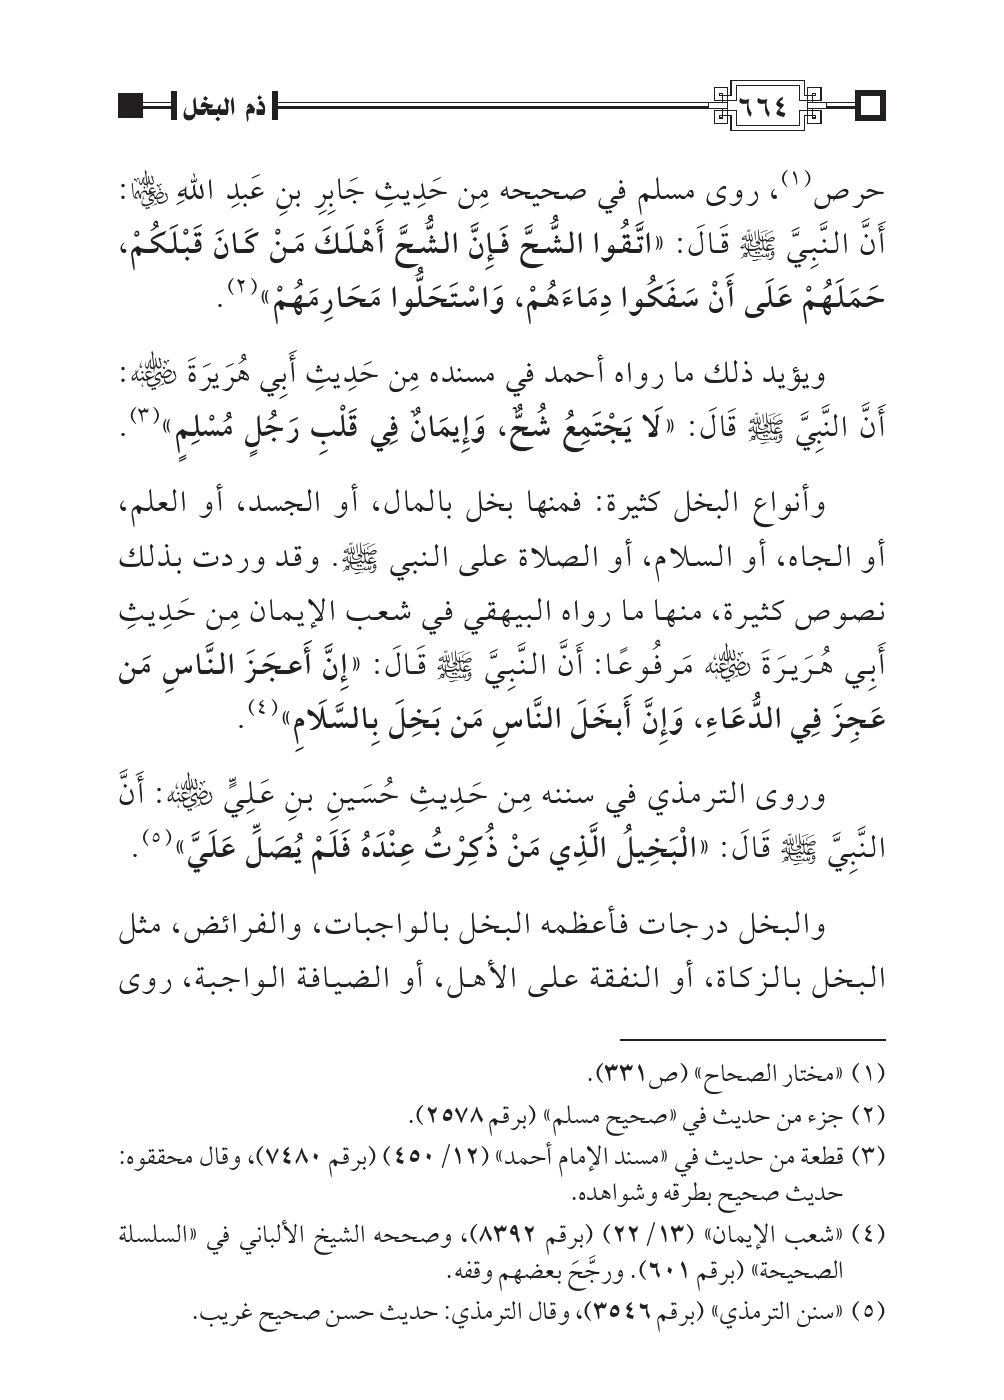 ٦٦٤
ذم البخل
حرص(١)، روى مسلم في صحيحه مِن حَدِيثِ جَابِرِ بنِ عَبدِ اللهِ رضي الله عنهما:
أَنَّ النَّبِيَّ ﷺ قَالَ: «اتَّقُوا الشُّحَّ فَإِنَّ الشُّحَّ أَهْلَكَ مَنْ كَانَ قَبْلَكُمْ،
حَمَلَهُمْ عَلَى أَنْ سَفَكُوا دِمَاءَهُمْ، وَاسْتَحَلُّوا مَحَارِمَهُمْ»(٢).
ويؤيد ذلك ما رواه أحمد في مسنده مِن حَدِيثِ أَبِي هُرَيرَةَ رضي الله عنه:
أَنَّ النَّبِيَّ ﷺ قَالَ: «لَا يَجْتَمِعُ شُحٌّ، وَإِيمَانٌ فِي قَلْبِ رَجُلٍ مُسْلِمٍ»(٣).
وأنواع البخل كثيرة: فمنها بخل بالمال، أو الجسد، أو العلم،
أو الجاه، أو السلام، أو الصلاة على النبي ﷺ. وقد وردت بذلك
نصوص كثيرة، منها ما رواه البيهقي في شعب الإيمان مِن حَدِيثِ
أَبِي هُرَيرَةَ رضي الله عنه مَرفُوعًا: أَنَّ النَّبِيَّ ﷺ قَالَ: «إِنَّ أَعجَزَ النَّاسِ مَن
عَجِزَ فِي الدُّعَاءِ، وَإِنَّ أَبخَلَ النَّاسِ مَن بَخِلَ بِالسَّلَامِ»(٤).
وروى الترمذي في سننه مِن حَدِيثِ حُسَينِ بنِ عَلِيٍّ رضي الله عنه: أَنَّ
النَّبِيَّ ﷺ قَالَ: «الْبَخِيلُ الَّذِي مَنْ ذُكِرْتُ عِنْدَهُ فَلَمْ يُصَلِّ عَلَيَّ»(٥).
والبخل درجات فأعظمه البخل بالواجبات، والفرائض، مثل
البخل بالزكاة، أو النفقة على الأهل، أو الضيافة الواجبة، روى
(١) «مختار الصحاح» (ص٣٣١).
(٢) جزء من حديث في «صحيح مسلم» (برقم ٢٥٧٨).
(٣) قطعة من حديث في «مسند الإمام أحمد» (١٢/ ٤٥٠) (برقم ٧٤٨٠)، وقال محققوه:
حديث صحيح بطرقه وشواهده.
(٤) «شعب الإيمان» (١٣/ ٢٢) (برقم ٨٣٩٢)، وصححه الشيخ الألباني في «السلسلة
الصحيحة» (برقم ٦٠١). ورجَّحَ بعضهم وقفه.
(٥) «سنن الترمذي» (برقم ٣٥٤٦)، وقال الترمذي: حديث حسن صحيح غريب.